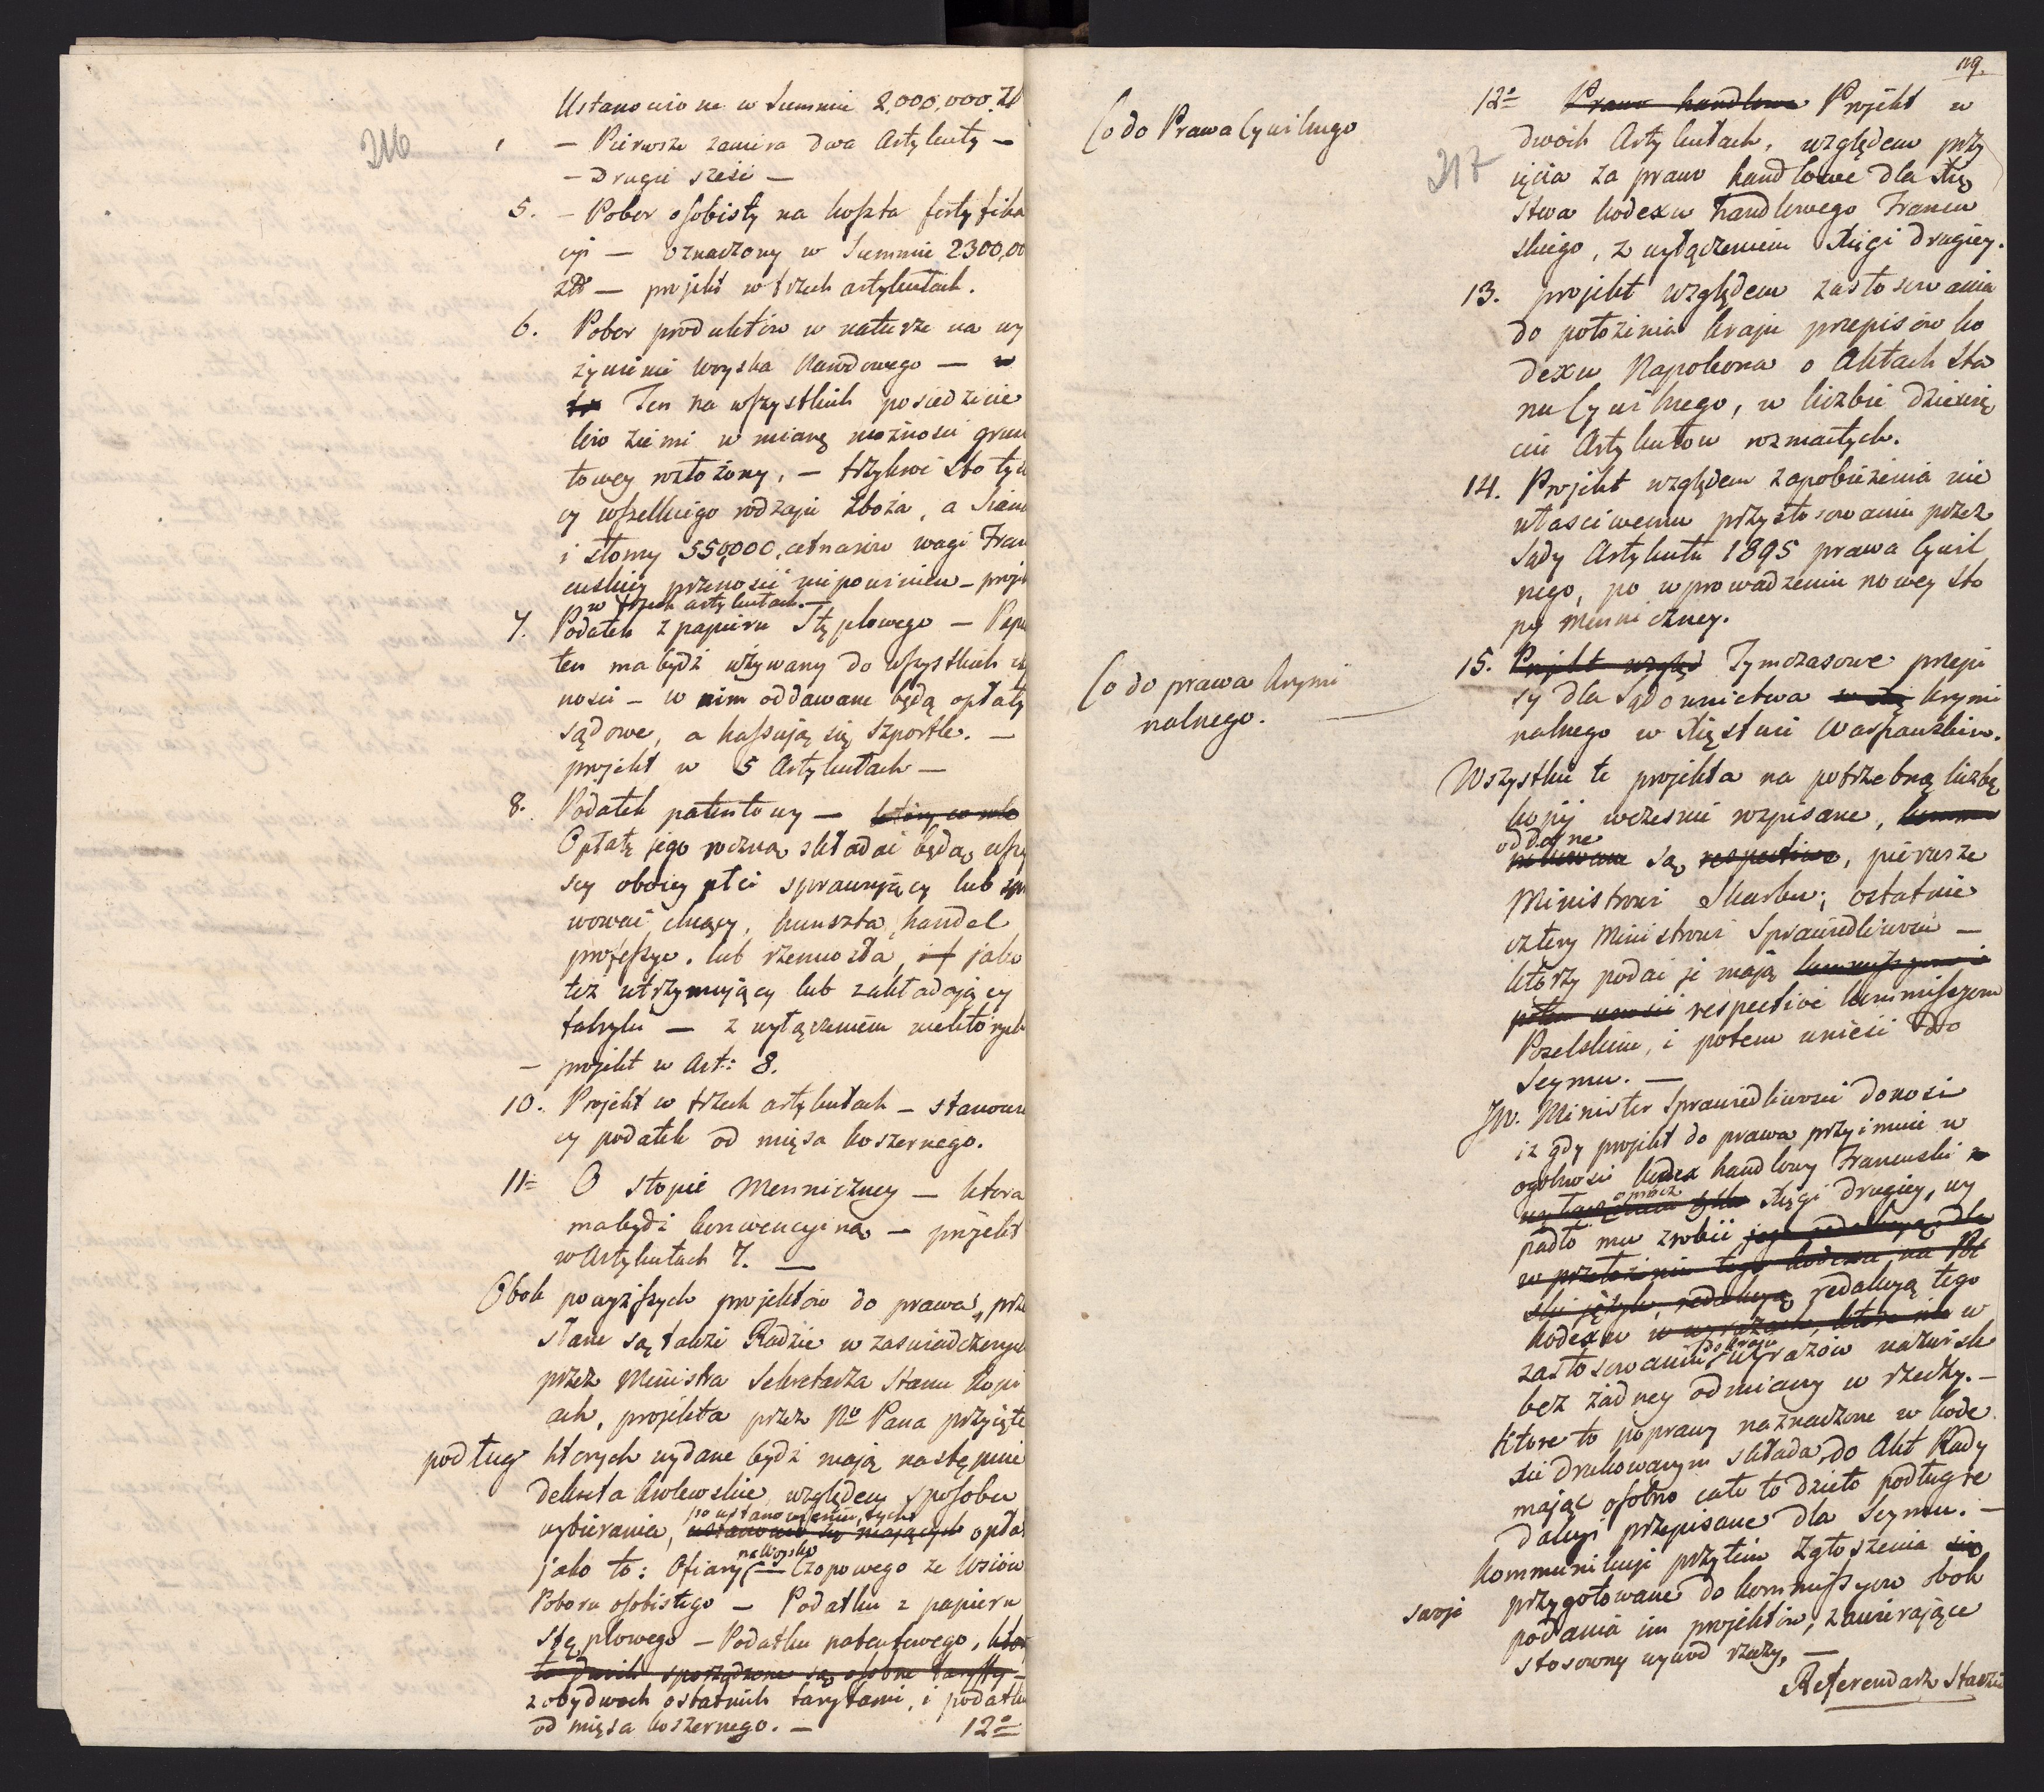 216
Ustanowiona w Summie 2,000,000. Zł
— Pierwsze zawiera dwa Artykuły —
— Drugie sześć —
5. — Pobor osobisty na koszta fortyfika
cyi — oznaczony w Summie 2300,00
zł — projekt w trzech artykułach.
6. Pobor produktów w naturze na wy
żywienie woyska Narodowego — w
Ten na wszystkich posiedzicie
lów ziemi w miarę możności grun
towey rozłożony, — trzykroć sto tysię
cy wszelkiego rodzaju zboża, a Siana
i słomy 550,000, cetnarów wagi Fran
cuskiey przenosić nie powinien — proje
w trzech artykułach. —
7. Podatek z papieru Stęplowego — Papi
ten ma bydź używany do wszystkich
ności — w nim oddawane będą opłaty
sądowe, a kassują się szportle. —
projekt w 5 Artykułach —
8. Podatek patentowy — który co rok
Opłatę jego roczną składać będą wszy
scy oboiey płci sprawujący lub spra
wować chcący, kunszta, handel
professye, lub rzemiosła, jako
też utrzymujący lub zakładający
fabryki — z wyłączeniem niektórych
— projekt w Art: 8.
10. Projekt w trzech artykułach — stanowią
cy podatek od mięsa koszernego.
11= O stopie Menniczney — która
ma bydź konwencyina — projekt
w Artykułach 7. —
Obok powyższych projektów do prawa, prze
słane są także Radzie w zaświadczonych
przez Ministra Sekretarza Stanu kopi
ach, projekta przez No Pana przyięte
podług których wydane bydź mają następnie
Dekreta królewskie względem sposobu
po ustanowieniu, tych
wybierania, ustanowić się mających opłat
na Woysko
jako to: Ofiary Czopowego ze Wsiów
Poboru osobistego — Podatku z papieru
stęplowego — Podatku patentowego, któr
to dwóch sporządzone są osobne taryffy —
z obydwoch ostatnich taryfami, i podatku
od mięsa koszernego. —
12o
119.
217
Co do Prawa Cywilnego
12o Prawo handlowe Projekt w
dwóch Artykułach, względem przy
ięcia za prawo handlowe dla Xię
stwa kodexu handlowego Francu
skiego, z wyłączeniem Xięgi drugiey.
13. projekt względem zastosowania
do położenia kraju przepisów ko
dexu Napoleona o Aktach Sta
nu Cywilnego, w liczbie dziesię
ciu Artykułów rozmaitych.
14. Projekt względem zapobieżenia nie
właściwemu przystosowaniu przez
Sądy Artykułu 1895 prawa Cywil
nego, po wprowadzeniu nowey sto
py menniczney.
Co do prawa krymi
nalnego.
15. Projekt względ Tymczasowe przepi
sy dla Sądownictwa krymi
nalnego w Xięstwie Warszawskim.
Wszystkie te projekta na potrzebną liczbę
kopij wcześnie rozpisane,
oddane
są respective, pierwsze
Ministrowi Skarbu; ostatnie
cztery Ministrowi Sprawiedliwości —
którzy podać je mają
potem wnieść respective kommissyom
Poselskim, i potem wnieść do
Seymu. —
JW. Minister Sprawiedliwości donosi
iż gdy projekt do prawa przyimuie w
ogólności kodex handlowy Francuski z
oprócz
wyłączeniem tylko Xięgi drugiey, wy
padło mu zrobić jego redakcyą dla
w przełożeniu tego kodexu na Pol
ski język, redakcyą redakcyą tego
kodexu w wyrazach, które nie w
do kraju
zastosowaniu wyrazów nazwisk
bez żadney odmiany w rzeczy. —
Które to poprawy naznaczone w kode
xie drukowanym składa do Akt Rady
mając osobno całe to dzieło podług re
dakcyi przepisane dla Seymu. —
kommunikuje przytem zgłoszenia się
swoje przygotowane do kommissyow obok
podania im projektów, zawierające
stosowny wywod rzeczy. —
Referendarz Staszic